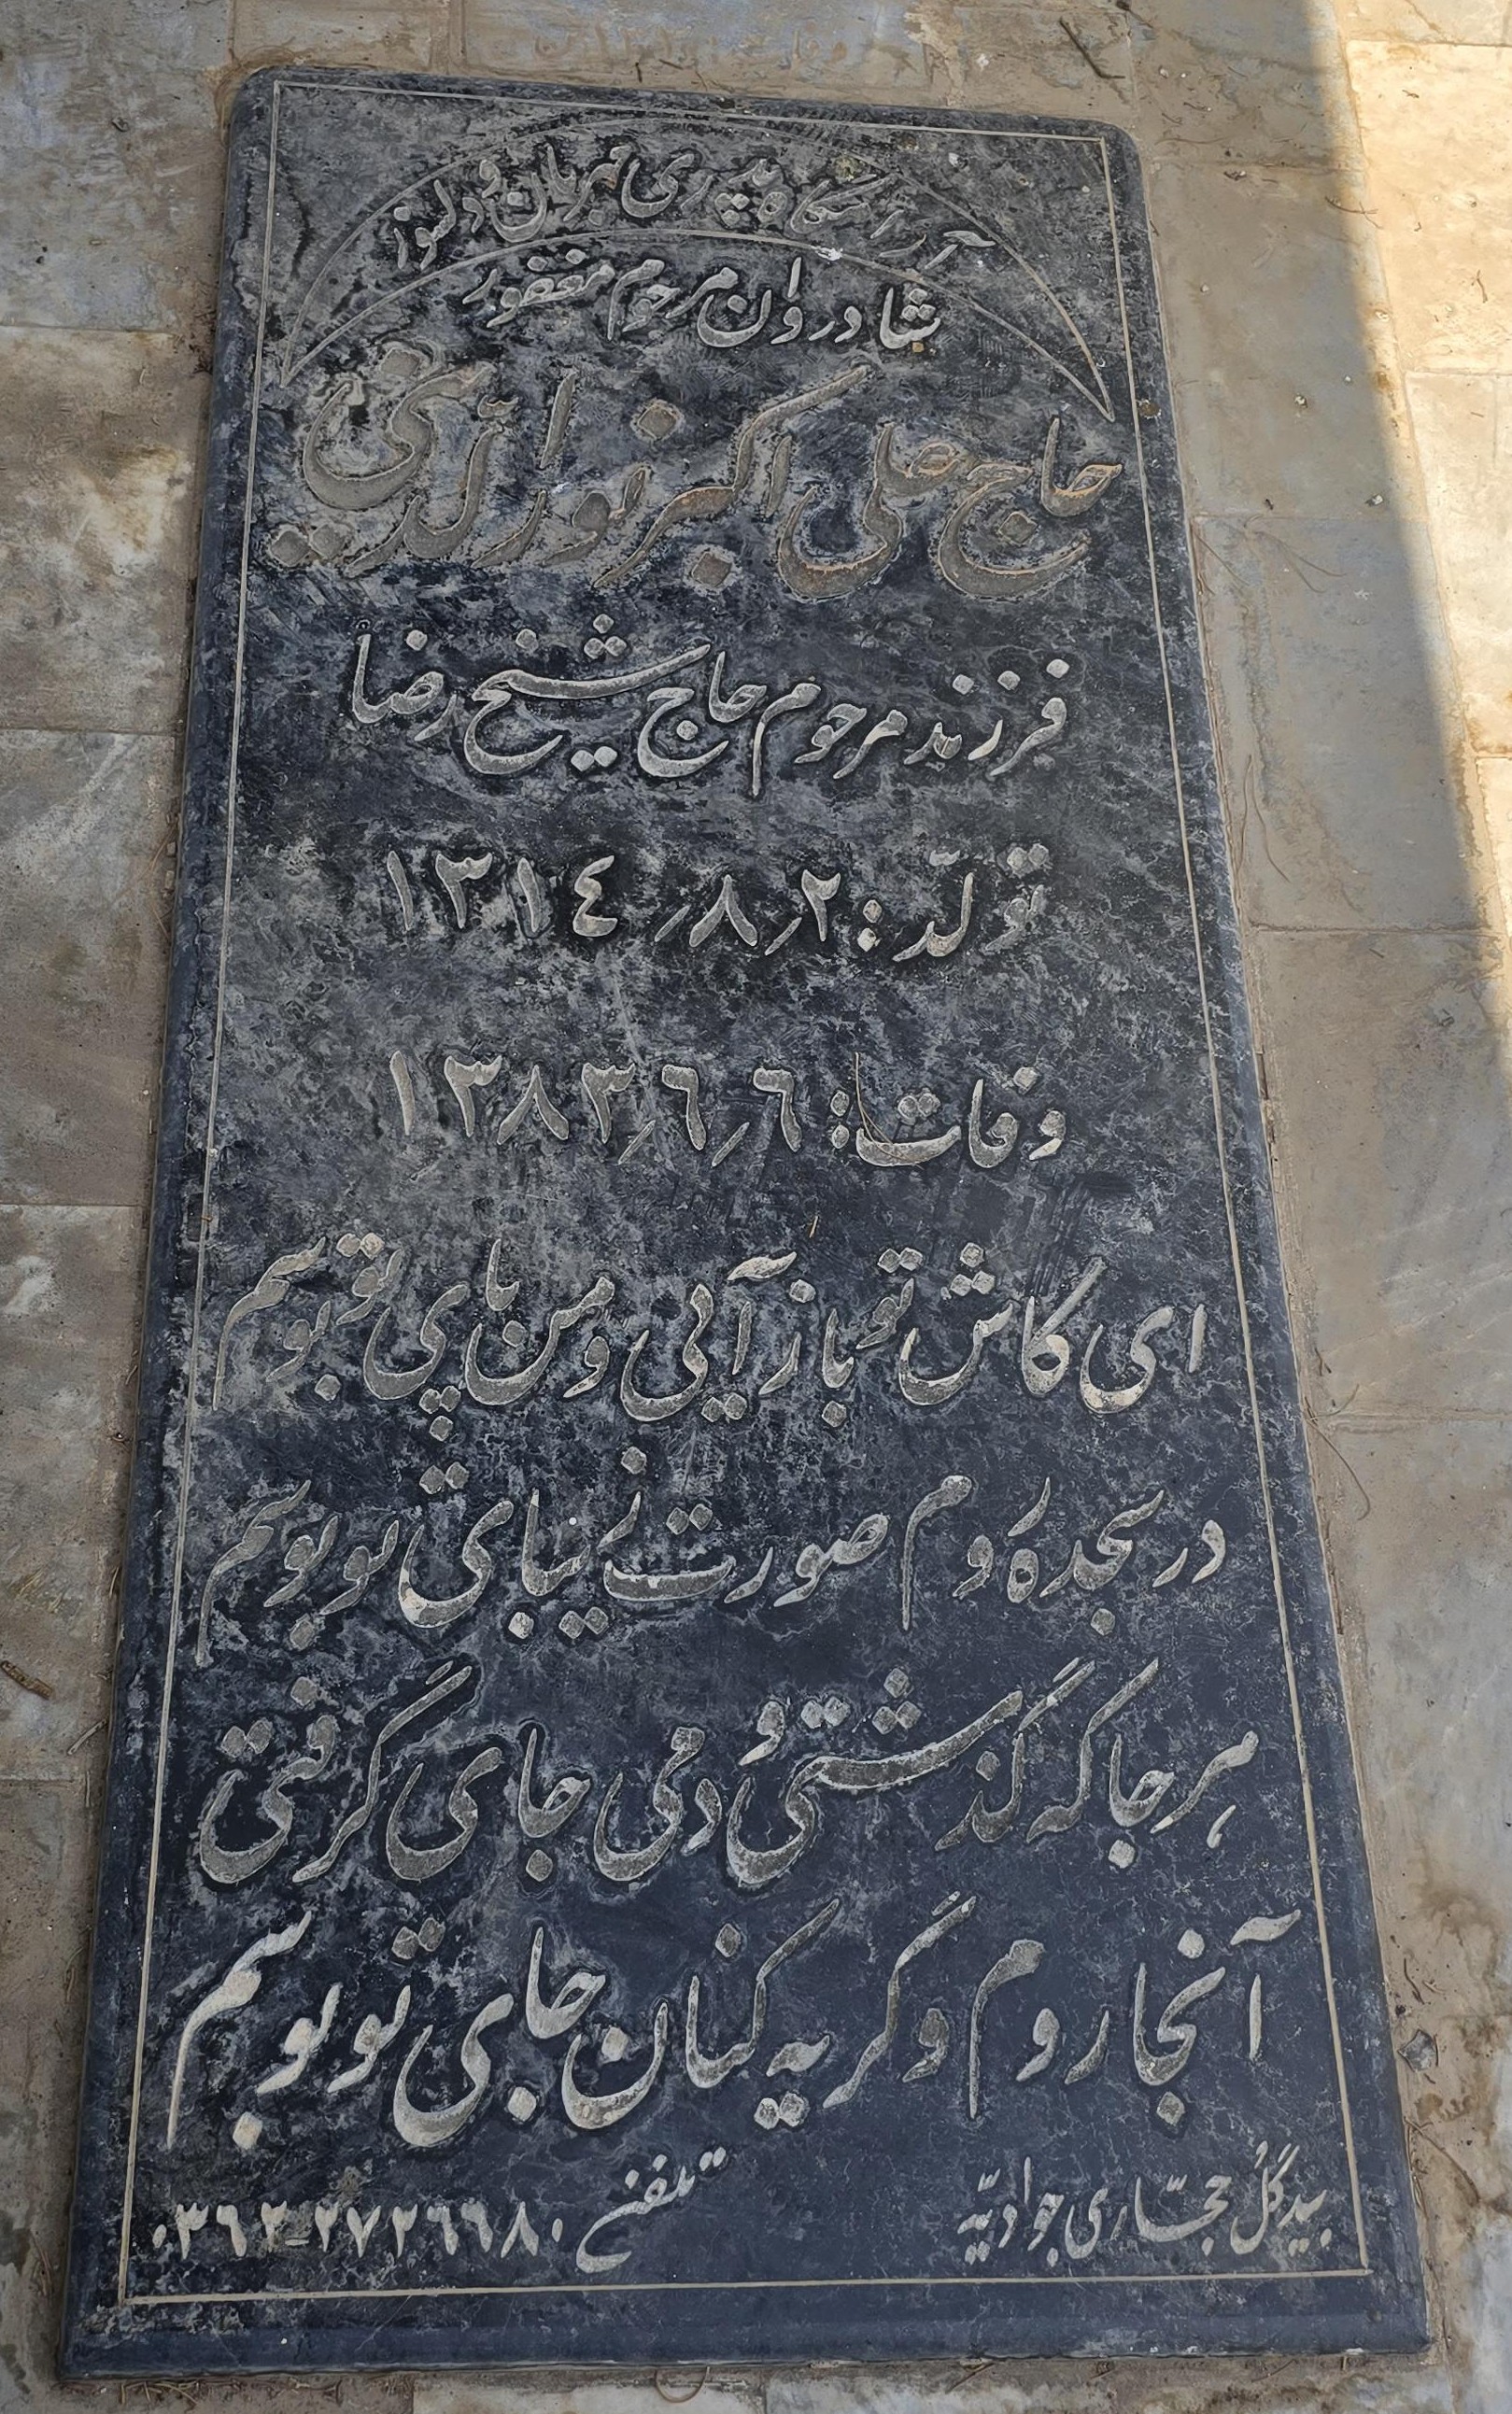 آرامگاه پدری مهربان و دلسوز
شادروان مرحوم مغفور
حاج علی اکبر نورالدینی
فرزند مرحوم حاج شیخ رضا
تولّد : ۲٫۸٫۱۳۱٤
وفات : ٦٫٦٫۱۳۸۳
ای کاش تو باز آیی و من پای تو بوسم
در سجده روم صورت زیبای تو بوسم
هر جا که گذشتی و دمی جای گرفتی
آنجا روم و گریه کنان جای تو بوسم
بیدگُل حجّاری جوادیّه
تلفن ۰۳٦۲-۲۷۲٦٦۸۰